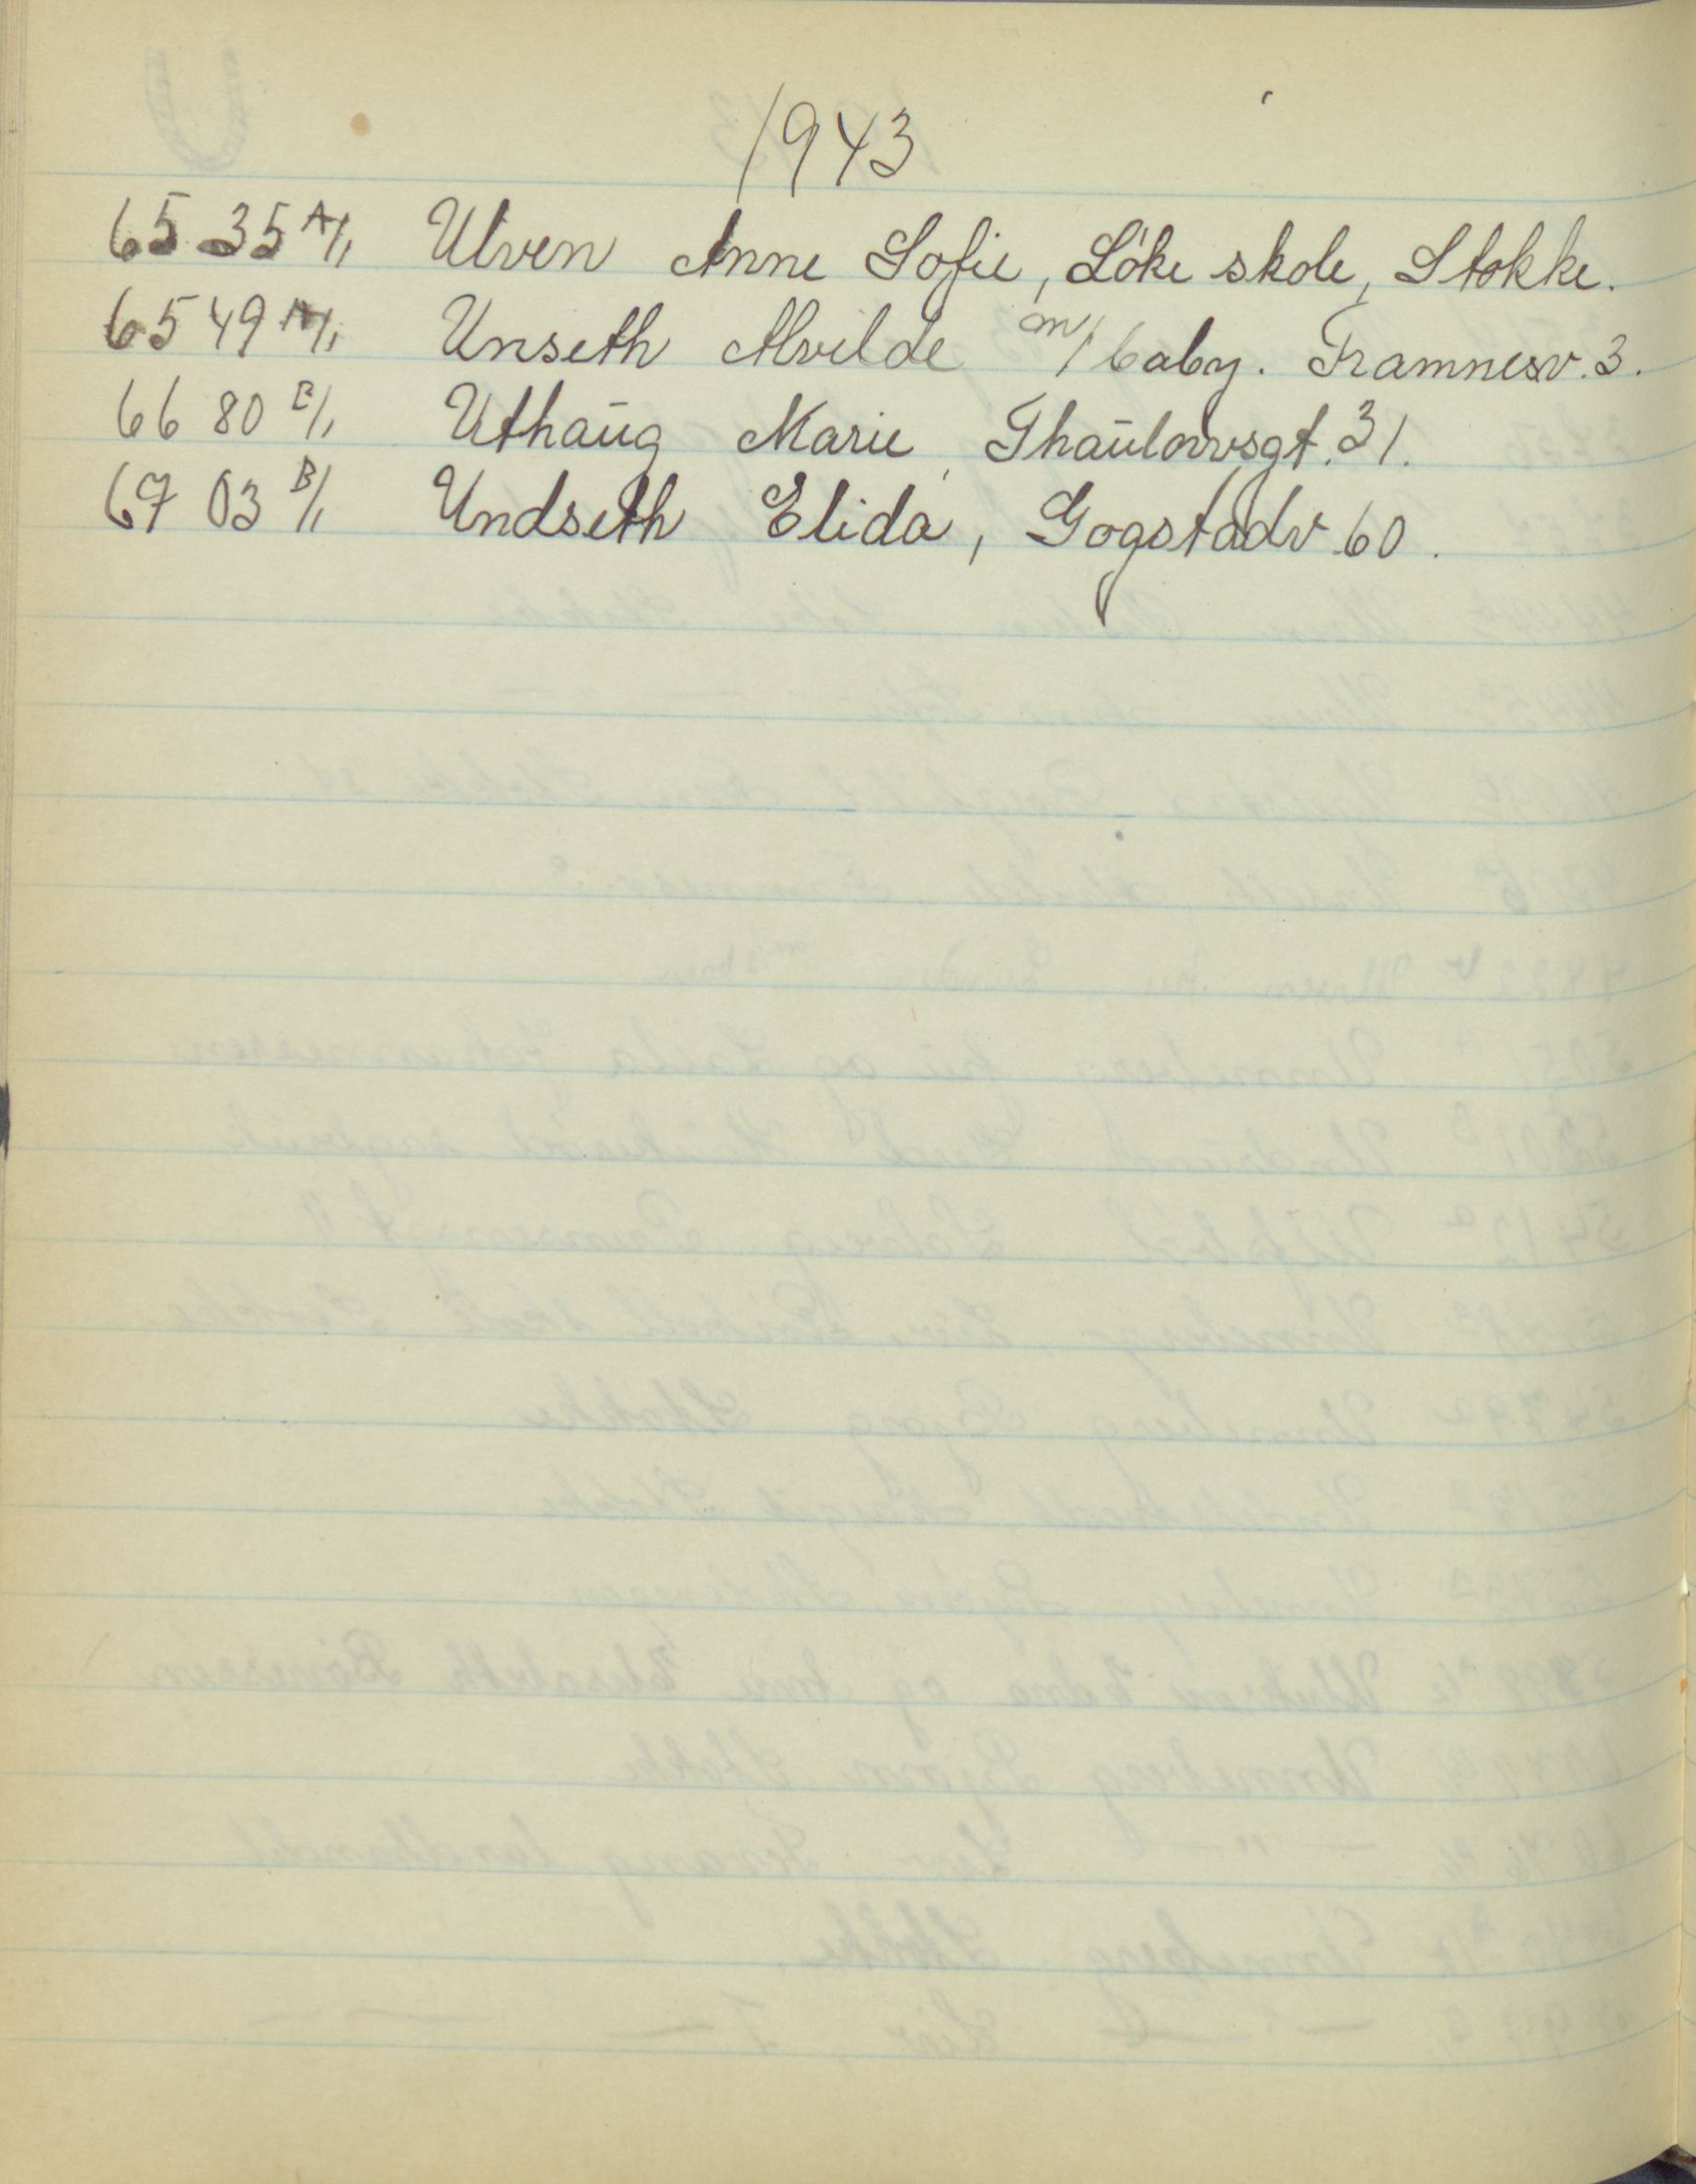 1943
65 35 A/1 Ulven Anne Sofie, Löke skole, Stokke.
65 49 A/1 Unseth Alvilde m/baby. Framnesv. 3.
66 80 B/1 Uthaüg Marie, Thaülowsgt. 31.
67 03 B/1 Undseth Elida, Gogstadv. 60.